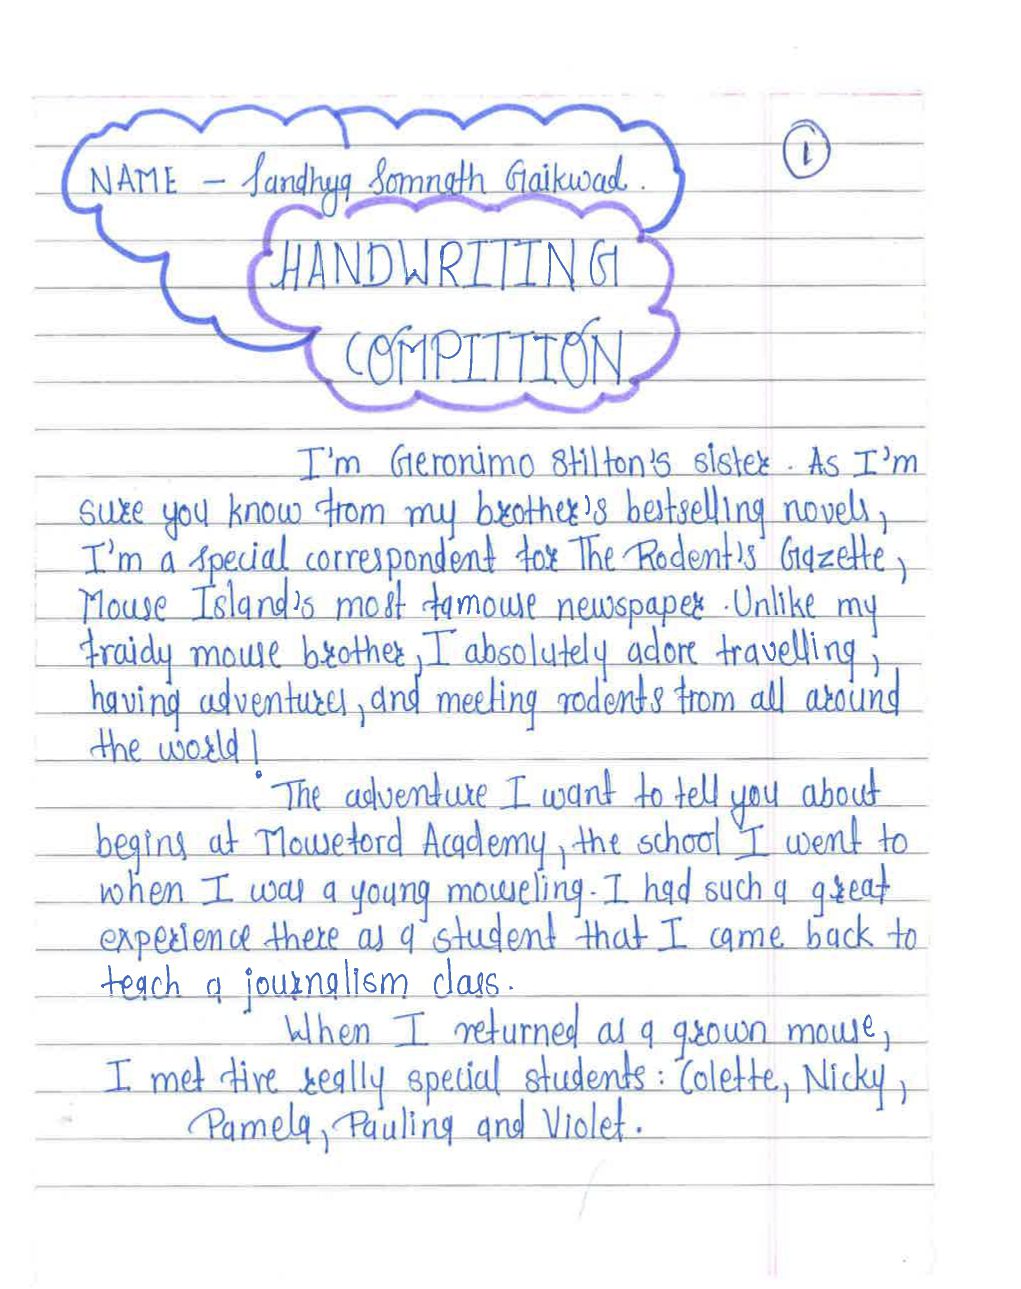 1
NAME - Sandhya Somnath Gaikwad.
HANDWRITING
COMPITITION
I'm Geronimo Stilton's sister. As I'm
sure you know from my brother's bestselling novels,
I'm a special correspondent for The Rodent's Gazette,
Mouse Island's most famouse newspaper. Unlike my
fraidy mouse brother, I absolutely adore travelling,
having adventures, and meeting rodents from all around
the world!
The adventure I want to tell you about
begins at Mouseford Academy, the school I went to
when I was a young mouseling. I had such a great
experience there as a student that I came back to
teach a journalism class.
When I returned as a grown mouse,
I met five really special students: Colette, Nicky,
Pamela, Paulina and Violet.